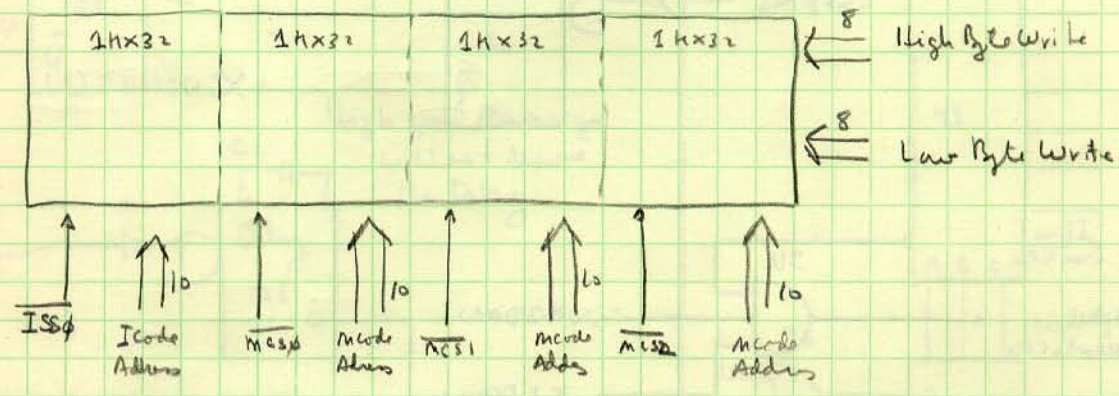 1kx32 1kx32 1kx32 1kx32
8 High Byte Write
8 Low Byte Write
10 10 10 10
ISSφ Icode Address mcsφ mcode Address mcs1 mcode Addres mcs2 mcode Address